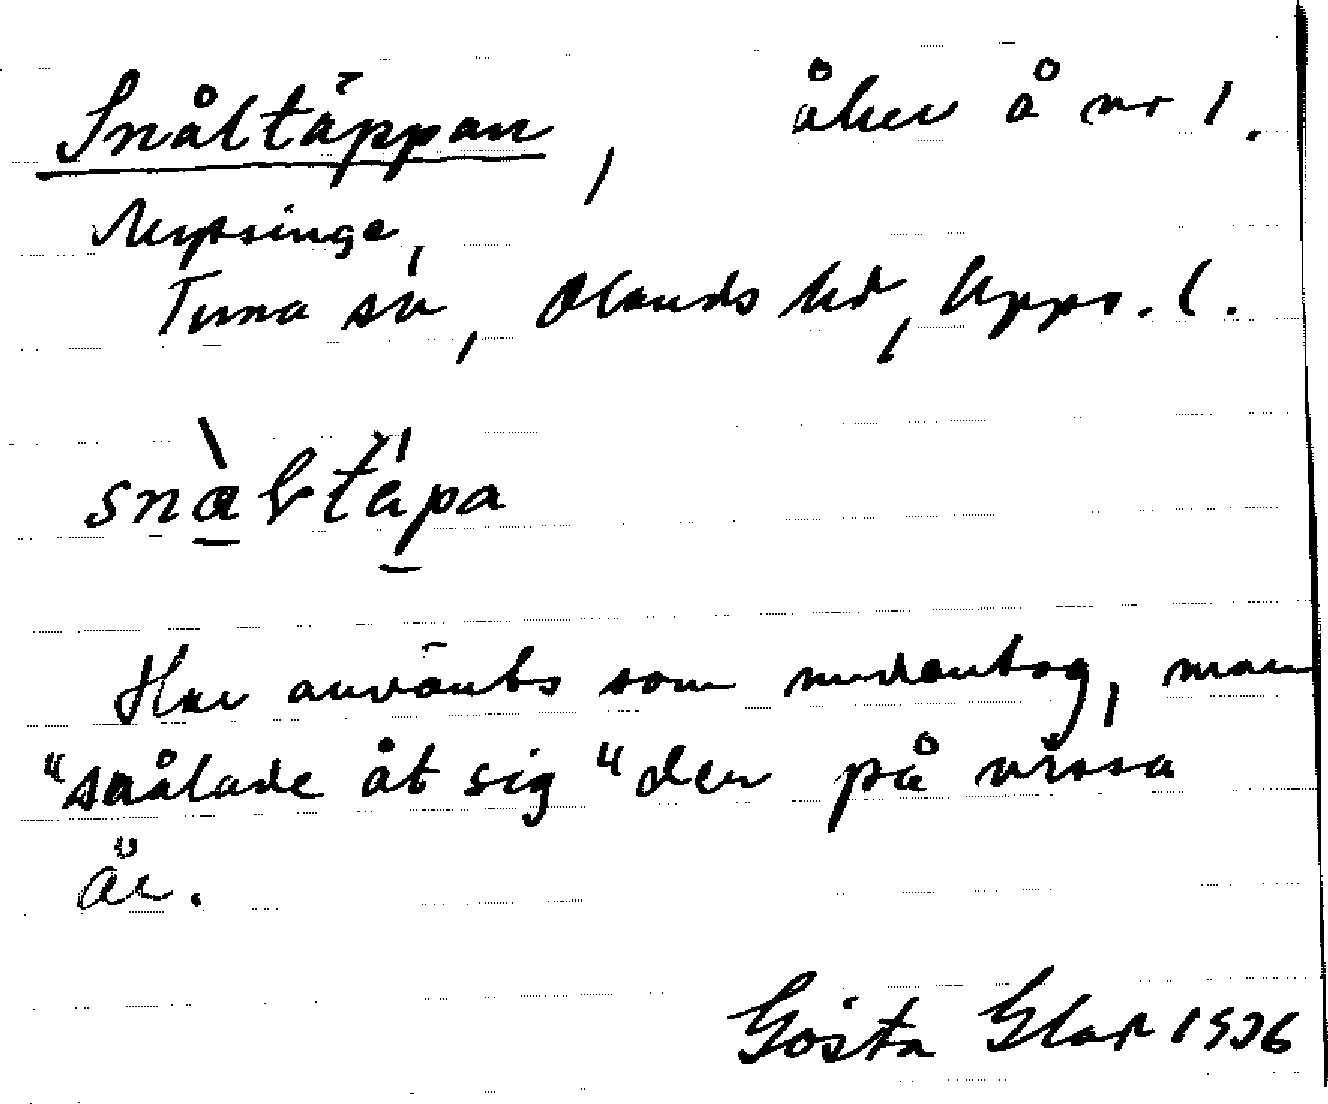 Snåltäppan, åker å nr 1.
Mysinge,
Tuna sn, Olands hd, Upps. l.
Har använts som undantag, man
"snålade åt sig" den på vissa
år.
Gösta Glad 1936